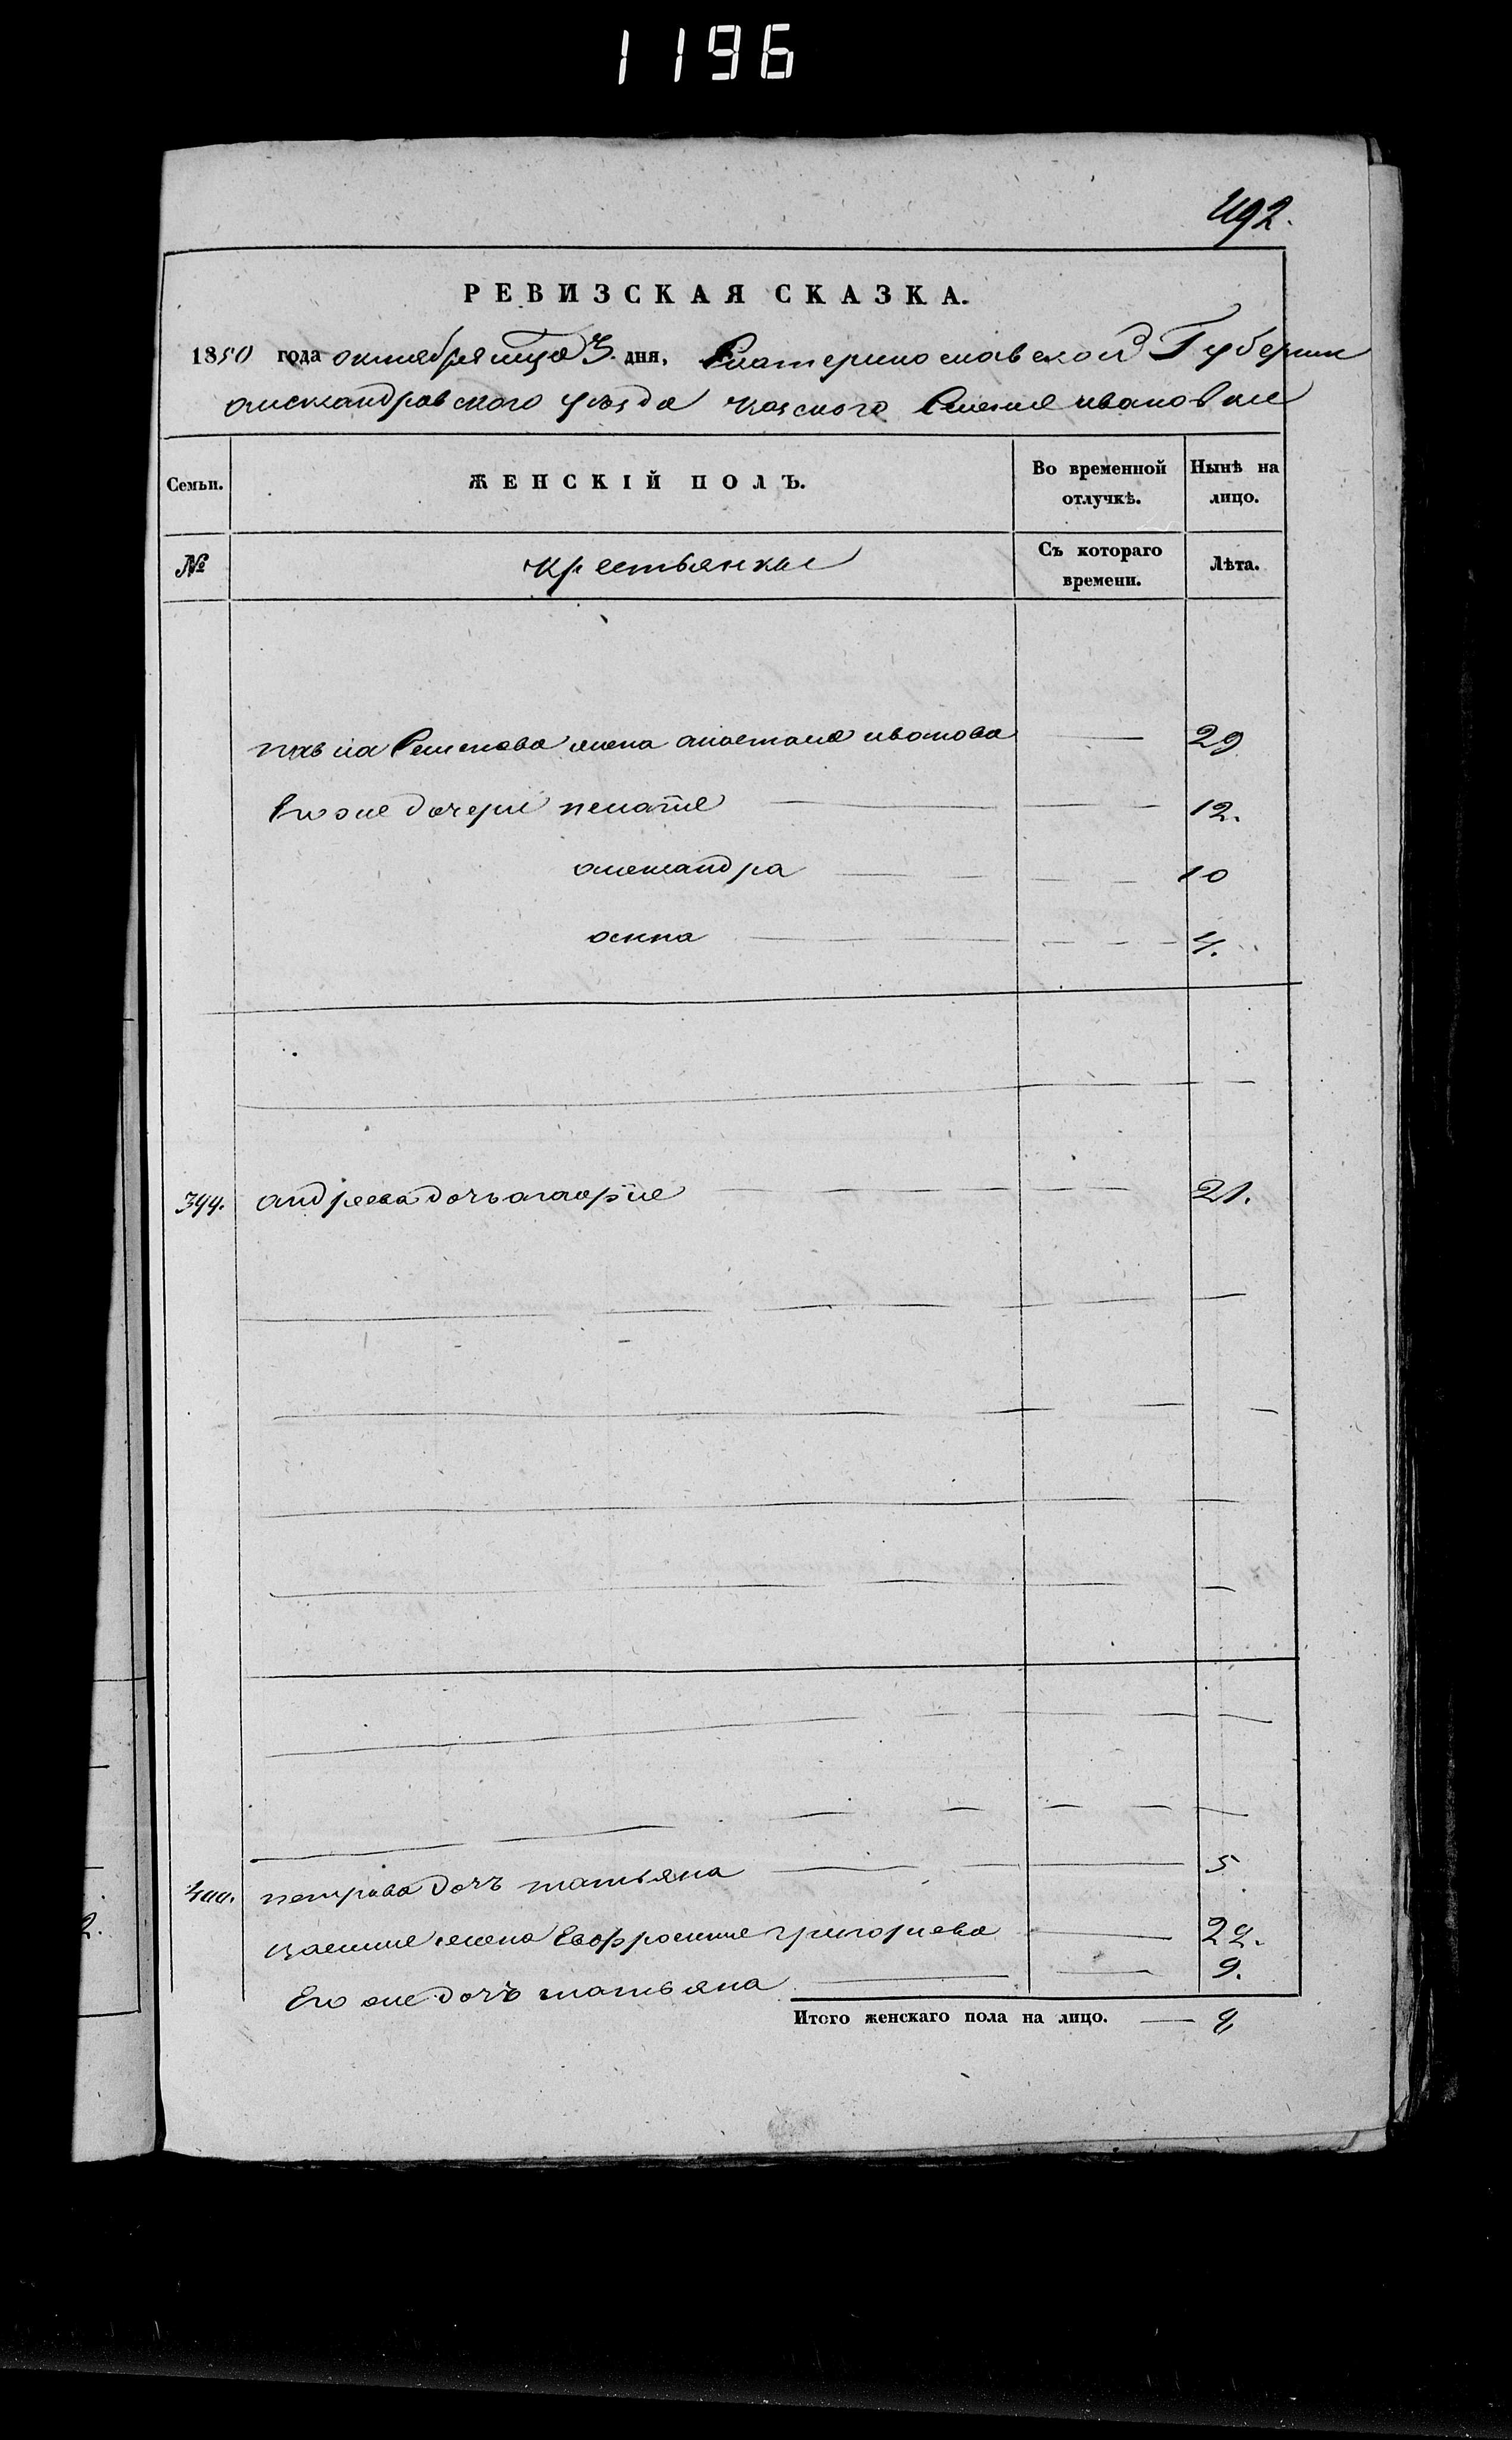 1196
492.
РЕВИЗСКАЯ СКАЗКА.
1850 года октября мца 3 дня, Екатеринославской Губернии
александровского уезда Казеного Селения ивановки
Семьи. ЖЕНСКІЙ ПОЛЪ. Во временной отлучкѣ. Нынѣ на лицо.
№ Крестьянки Съ котораго времени. Лѣта.
жена анастасия иванова 29
Его же дочери пелагия 12.
александра 10
анна 4.
399. андреева дочь агафия 21.
400. петрова дочь татьяна 5
жена Евфросиния григорьева 29.
Его же дочь татьяна 9.
Итого женскаго пола на лицо. — 8